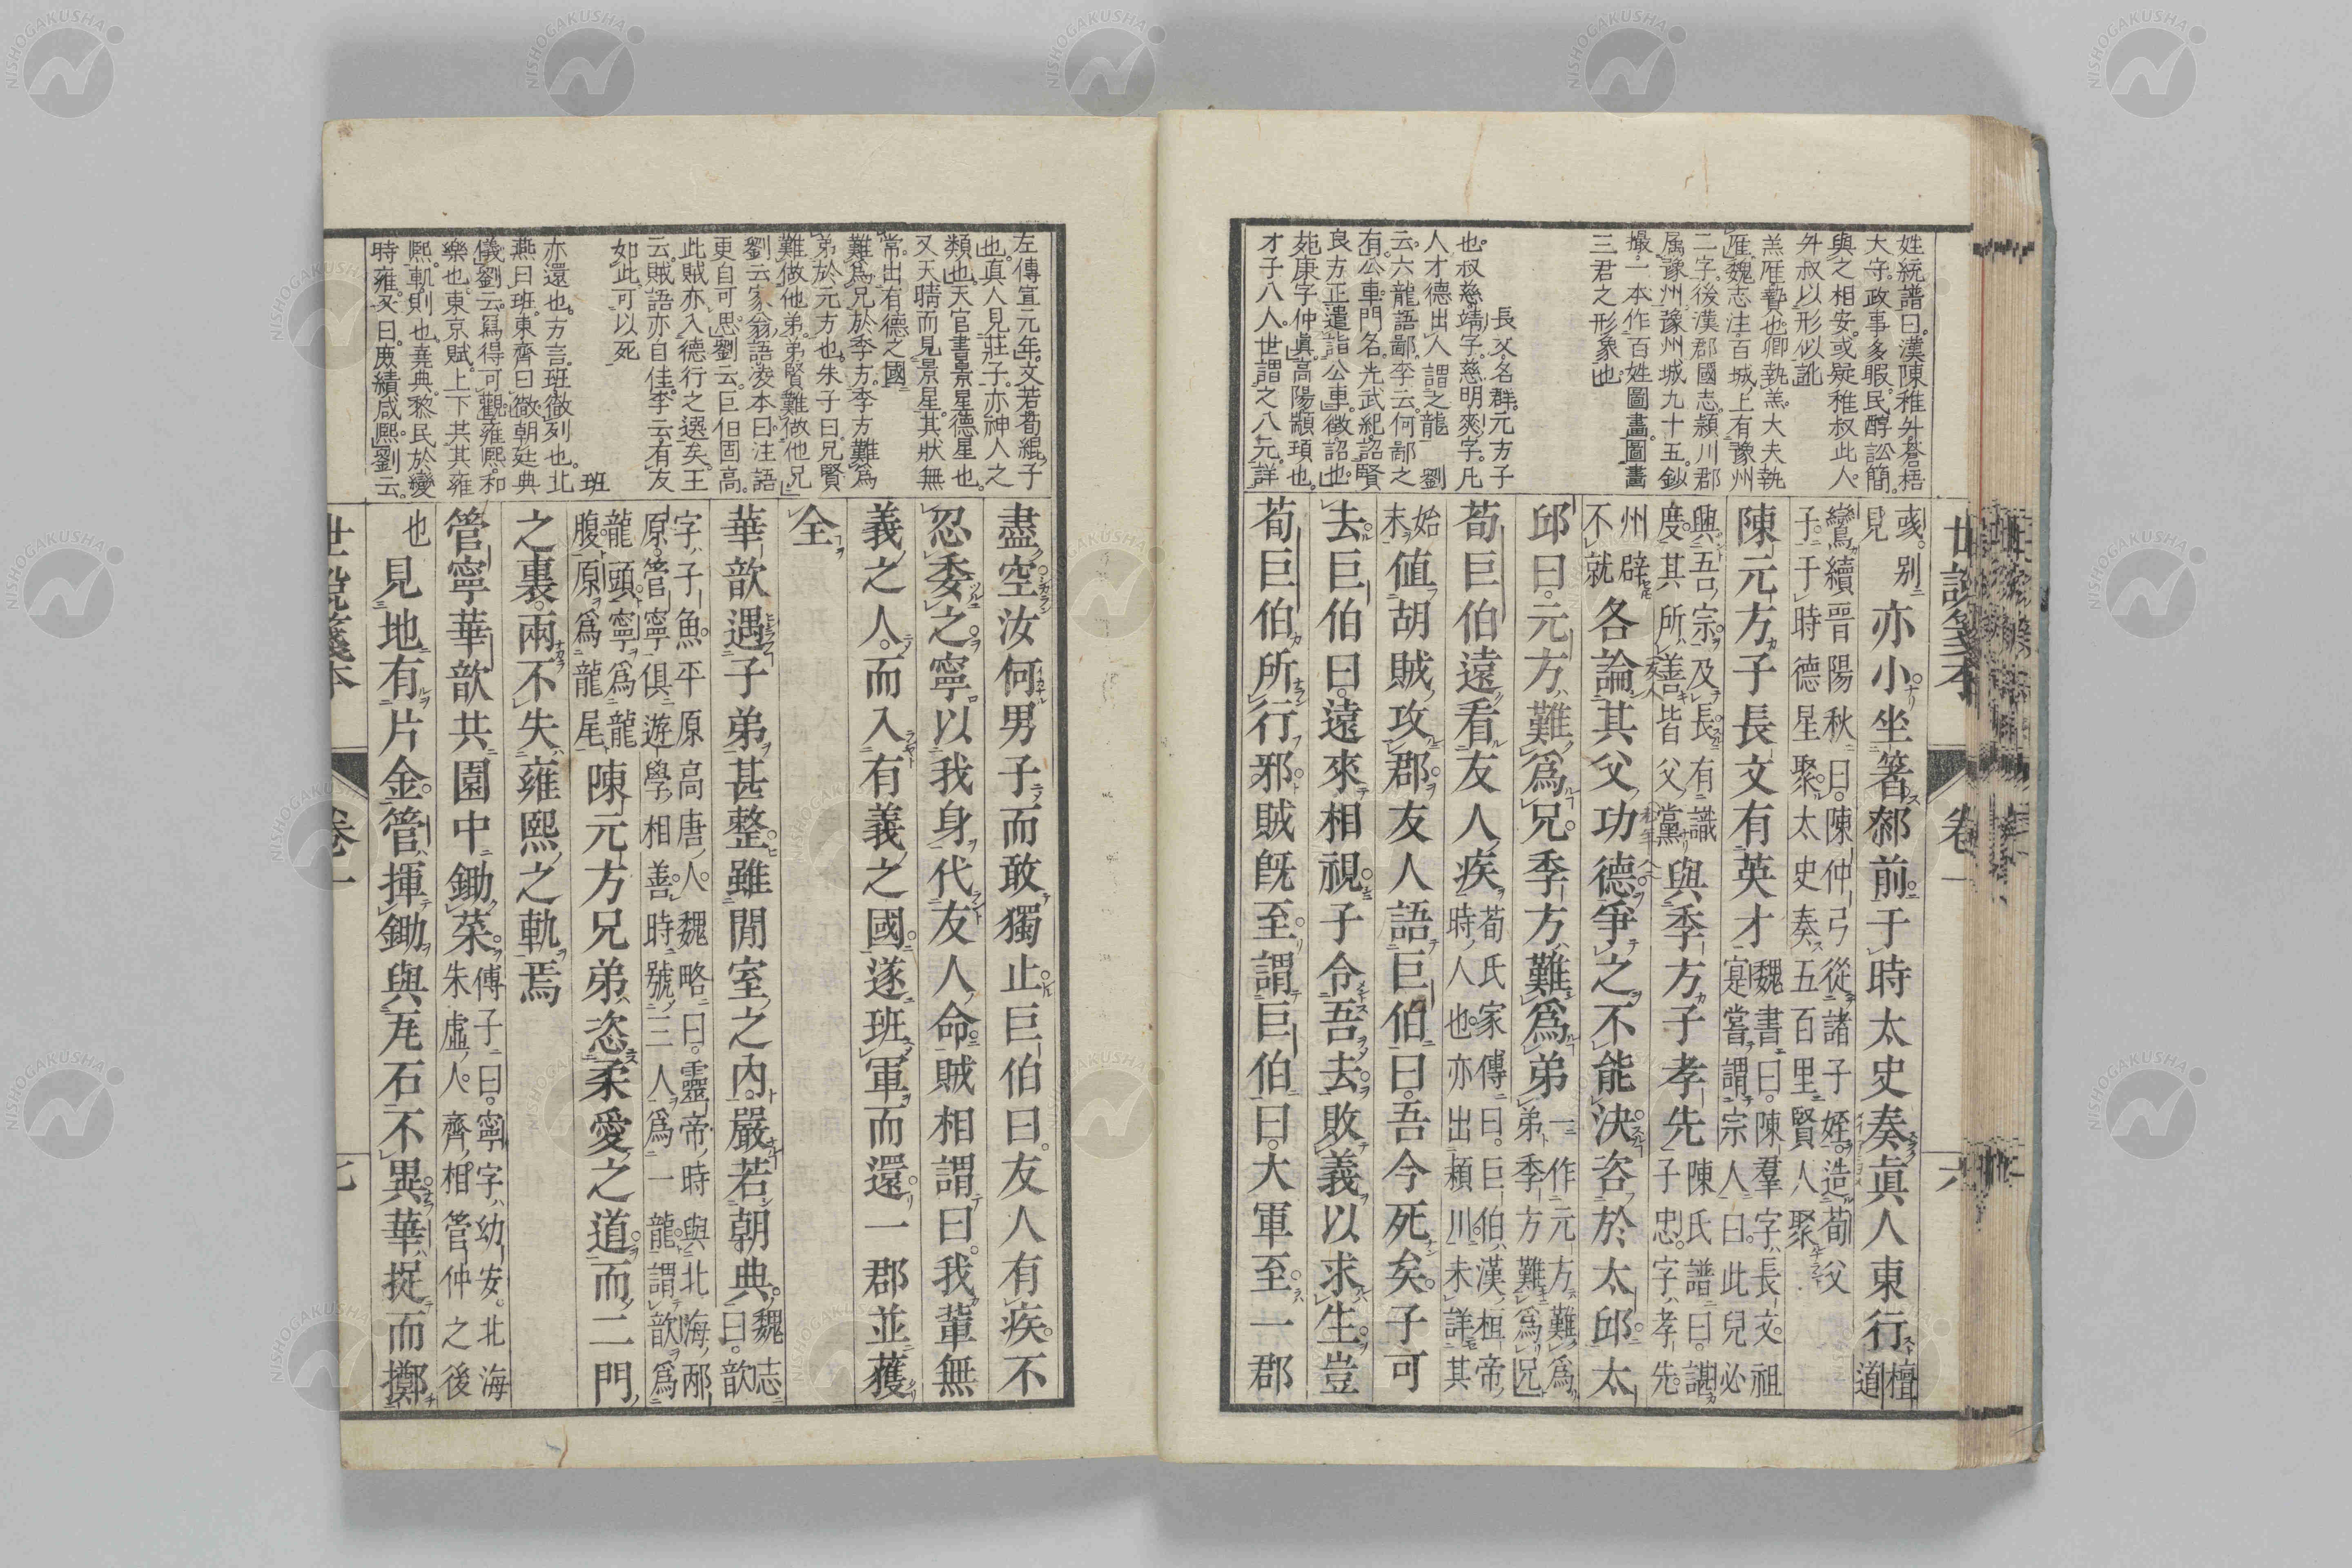 姓統譜曰。漢陳稚外蒼梧
大守。政事多暇。民醇訟簡。
與之相安。或疑稚叔此人。
外叔以形似訛
羔雁贄也。卿執羔。大夫執
雁。魏志注百城上有豫州
二字。後漢郡國志。潁川郡
属豫州。豫州城九十五。鈔
撮。一本作百姓圖畫。圖畫
三君之形象也
長文。名群。元方子
也。叔慈。靖字。慈明。爽字。凡
人才德出人謂之龍　劉
云。六龍語鄙。李云。何鄙之
有。公車門名。光武紀。詔賢
良方正遣詣公車。徴詔也。
苑康字仲眞。高陽顓頊也。
才子八人。世謂之八元。詳
世說箋本
卷一
六
彧。別見亦小坐著郗前于時太史奏眞人東行檀道
鸞續晉陽秋曰。陳仲弓從諸子姪。造荀父
子。于時德星聚。太史奏。五百里賢人聚
陳元方子長文有英才魏書曰。陳羣字長文。祖
寔嘗謂宗人曰。此兒必
興吾宗。及長有識
度。其所善皆父黨與季方子孝先陳氏譜曰。諶
子忠。字孝先。
州辟
不就各論其父功德爭之不能決咨於太邱太
邱曰。元方難爲兄。季方難爲弟一作元方難爲
弟季方難爲兄
荀巨伯遠看友人疾荀氏家傳曰。巨伯漢桓帝
時人也。亦出潁川。未詳其
始
末値胡賊攻郡友人語巨伯曰。吾今死矣。子可
去。巨伯曰。遠來相視。子令吾去。敗義以求生。豈
荀巨伯所行邪賊旣至。謂巨伯曰。大軍至。一郡
左傳宣元年。文若荀緄子
也。眞人見莊子。亦神人之
類也。天官書景星德星也。
又天晴而見景星。其狀無
常。出有德之國
難爲兄於季方。季方難爲
弟於元方也。朱子曰。兄賢
難做他弟。弟賢難做他兄
劉云。家翁語。凌本曰。注語
更自可思。劉云。巨伯固高。
此賊亦入德行之選矣。王
云。賊語亦自佳。李云有友
如此。可以死
班
亦還也。方言。班徹列也。北
燕曰班。東齊曰徹。朝廷典
儀。劉云。寫得可觀。雍熙。和
樂也。東京賦。上下共其雍
熙。軌則也。堯典。黎民於變
時雍。又曰。庶績咸熙。劉云。
盡空。汝何男子。而敢獨止。巨伯曰。友人有疾。不
忍委之。寧以我身代友人命。賊相謂曰。我輩無
義之人。而入有義之國。遂班軍而還。一郡並獲
全
華歆遇子弟甚整雖閒室之內。嚴若朝典。魏志
曰。歆
字子魚。平原高唐人。魏略曰。靈帝時與北海邴
原。管寧俱遊學相善。時號三人爲一龍。謂歆爲
龍頭寧爲龍
腹原爲龍尾陳元方兄弟恣柔愛之道。而二門
之裏。兩不失雍熙之軌焉
管寧華歆共園中鋤菜。傅子曰。寧字幼安。北海
朱虛人。齊相管仲之後
也見地有片金。管揮鋤與瓦石不異華捉而擲
世說箋本
卷一
七